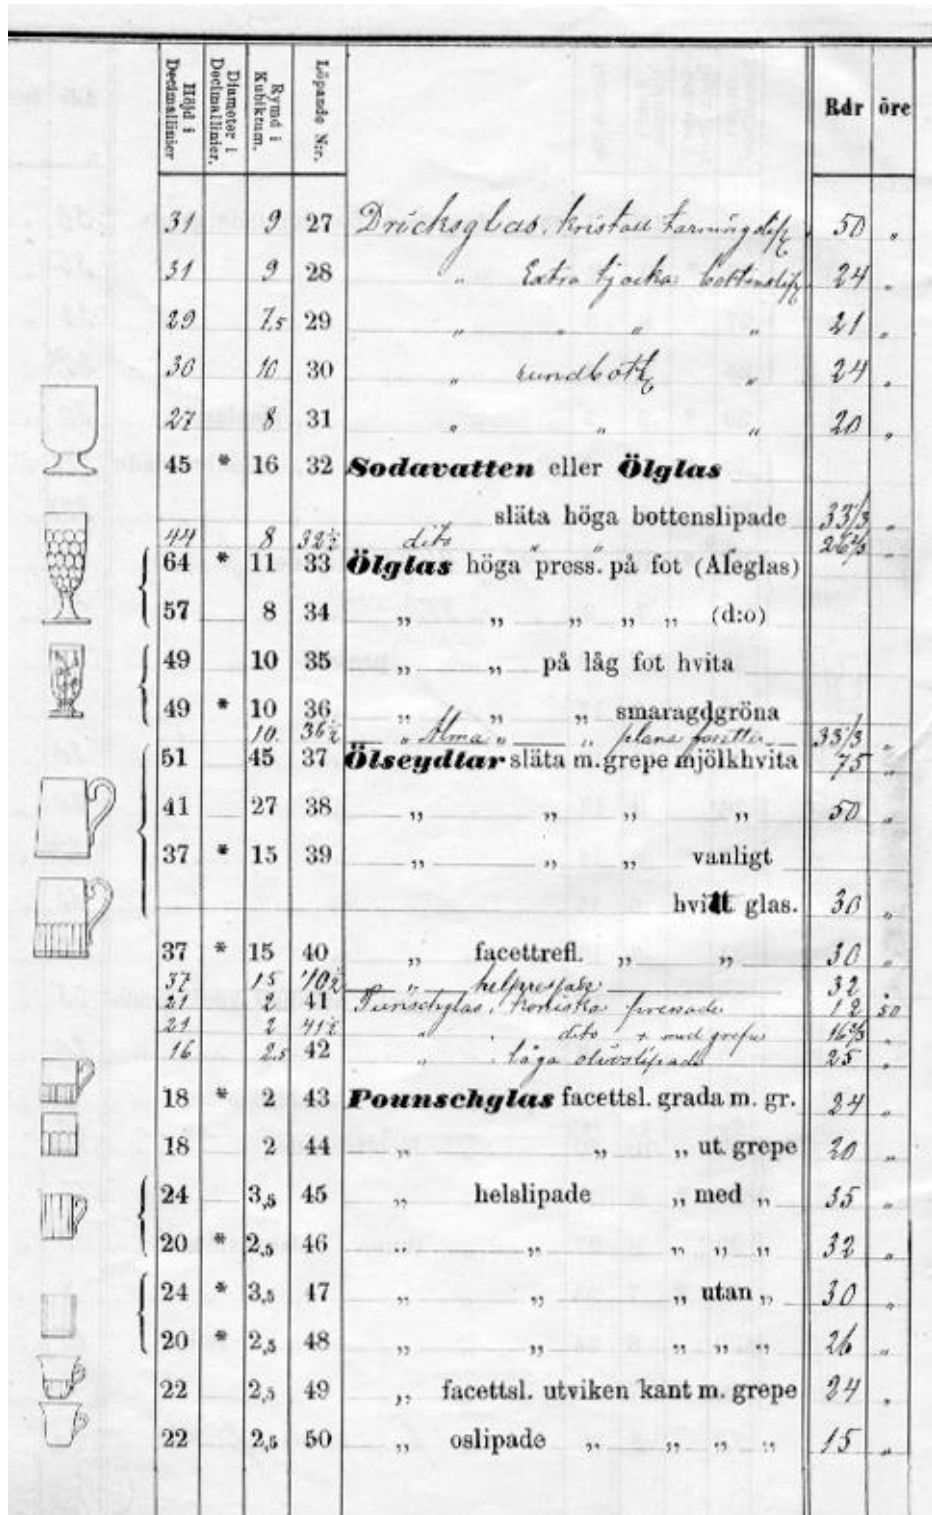 Höjd i Decimallinier Diameter i Decimallinier. Rymd i Kubiktum. Löpande N:r. Rdr öre
31 9 27 Dricksglas. kristall tärningslip 50 "
31 9 28 " Extra tjocka bottenslip 24 "
29 7,5 29 " " " " 21 "
30 10 30 " rundbott " 24 "
27 8 31 " " " 20 "
45 * 16 32 Sodavatten eller Ölglas
släta höga bottenslipade 33 1/3 "
44 8 32 1/2 dito " " 26 2/3 "
64 * 11 33 Ölglas höga press. på fot (Aleglas)
57 8 34 " " " " " (d:o)
49 10 35 " " på låg fot hvita
49 * 10 36 " " " smaragdgröna
10. 36 1/2 " Alma " " plana facetter 33 1/3 "
51 45 37 Ölseydlar släta m. grepe mjölkhvita 75 "
41 27 38 " " " " 50 "
37 * 15 39 " " " vanligt
hvitt glas. 30 "
37 * 15 40 " facettrefl. " " 30 "
37 15 40 1/2 " helpressade 32 "
21 2 41 Punschglas. koniska pressade 12 50
21 2 41 1/2 " dito + med grepe 16 2/3 "
16 2,5 42 " låga olivslipade 25 "
18 * 2 43 Pounschglas facettsl. grada m. gr. 24 "
18 2 44 " " " ut. grepe 20 "
24 3,5 45 " helslipade " med " 35 "
20 * 2,5 46 " " " " " 32 "
24 * 3,5 47 " " " utan " 30 "
20 * 2,5 48 " " " " " 26 "
22 2,5 49 " facettsl. utviken kant m. grepe 24 "
22 2,5 50 " oslipade " " " " 15 "